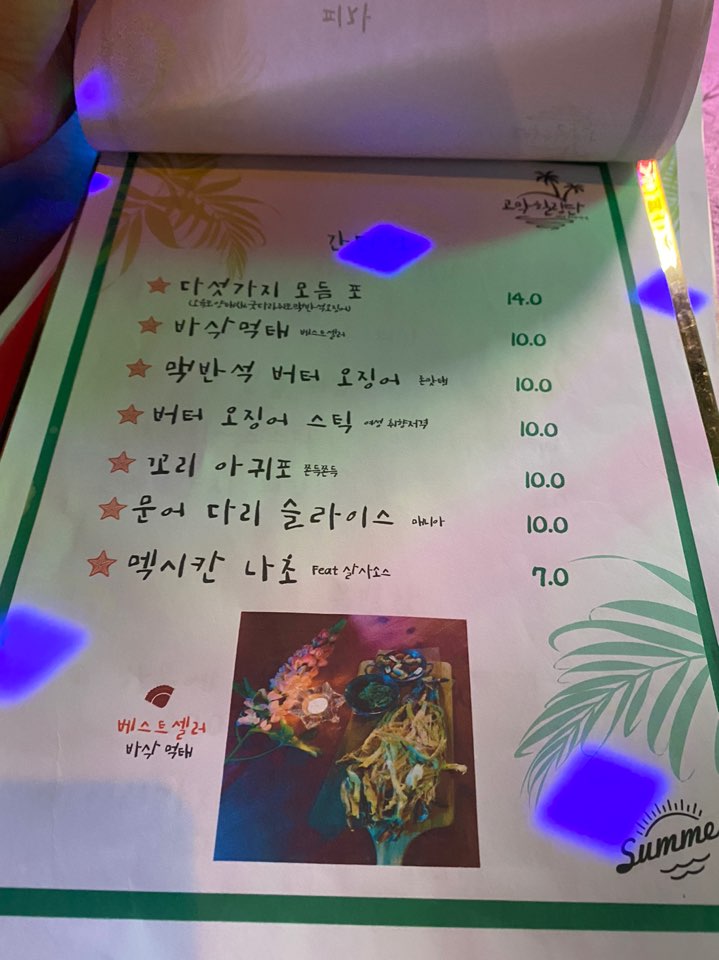 피자
다섯가지 모듬 포
14.0
바삭먹태 베스트셀러
10.0
맥반석 버터 오징어
10.0
버터 오징어 스틱 여성 취향저격
10.0
꼬리 아귀포 쫀득쫀득
10.0
문어 다리 슬라이스 매니아
10.0
멕시칸 나초 Feat 살사소스
7.0
베스트셀러
바삭 먹태
Summe